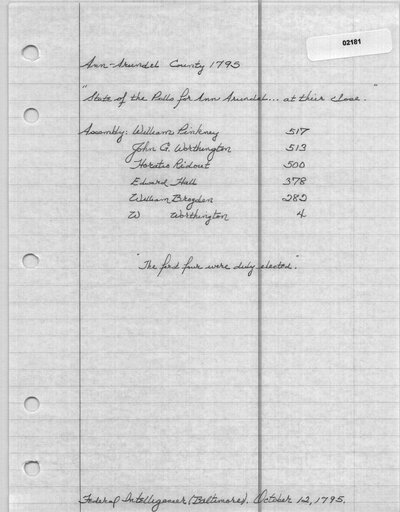 02181
Ann-Arundel County 1795
"State of the Polls for Ann Arundel... at their close."
Assembly: William Pinkney 517
John G. Worthington 513
Horatio Ridout 500
Edward Hall 378
William Brogden 282
W Worthington 4
"The first four were duly elected."
Federal Intelligencer (Baltimore). October 12, 1795.